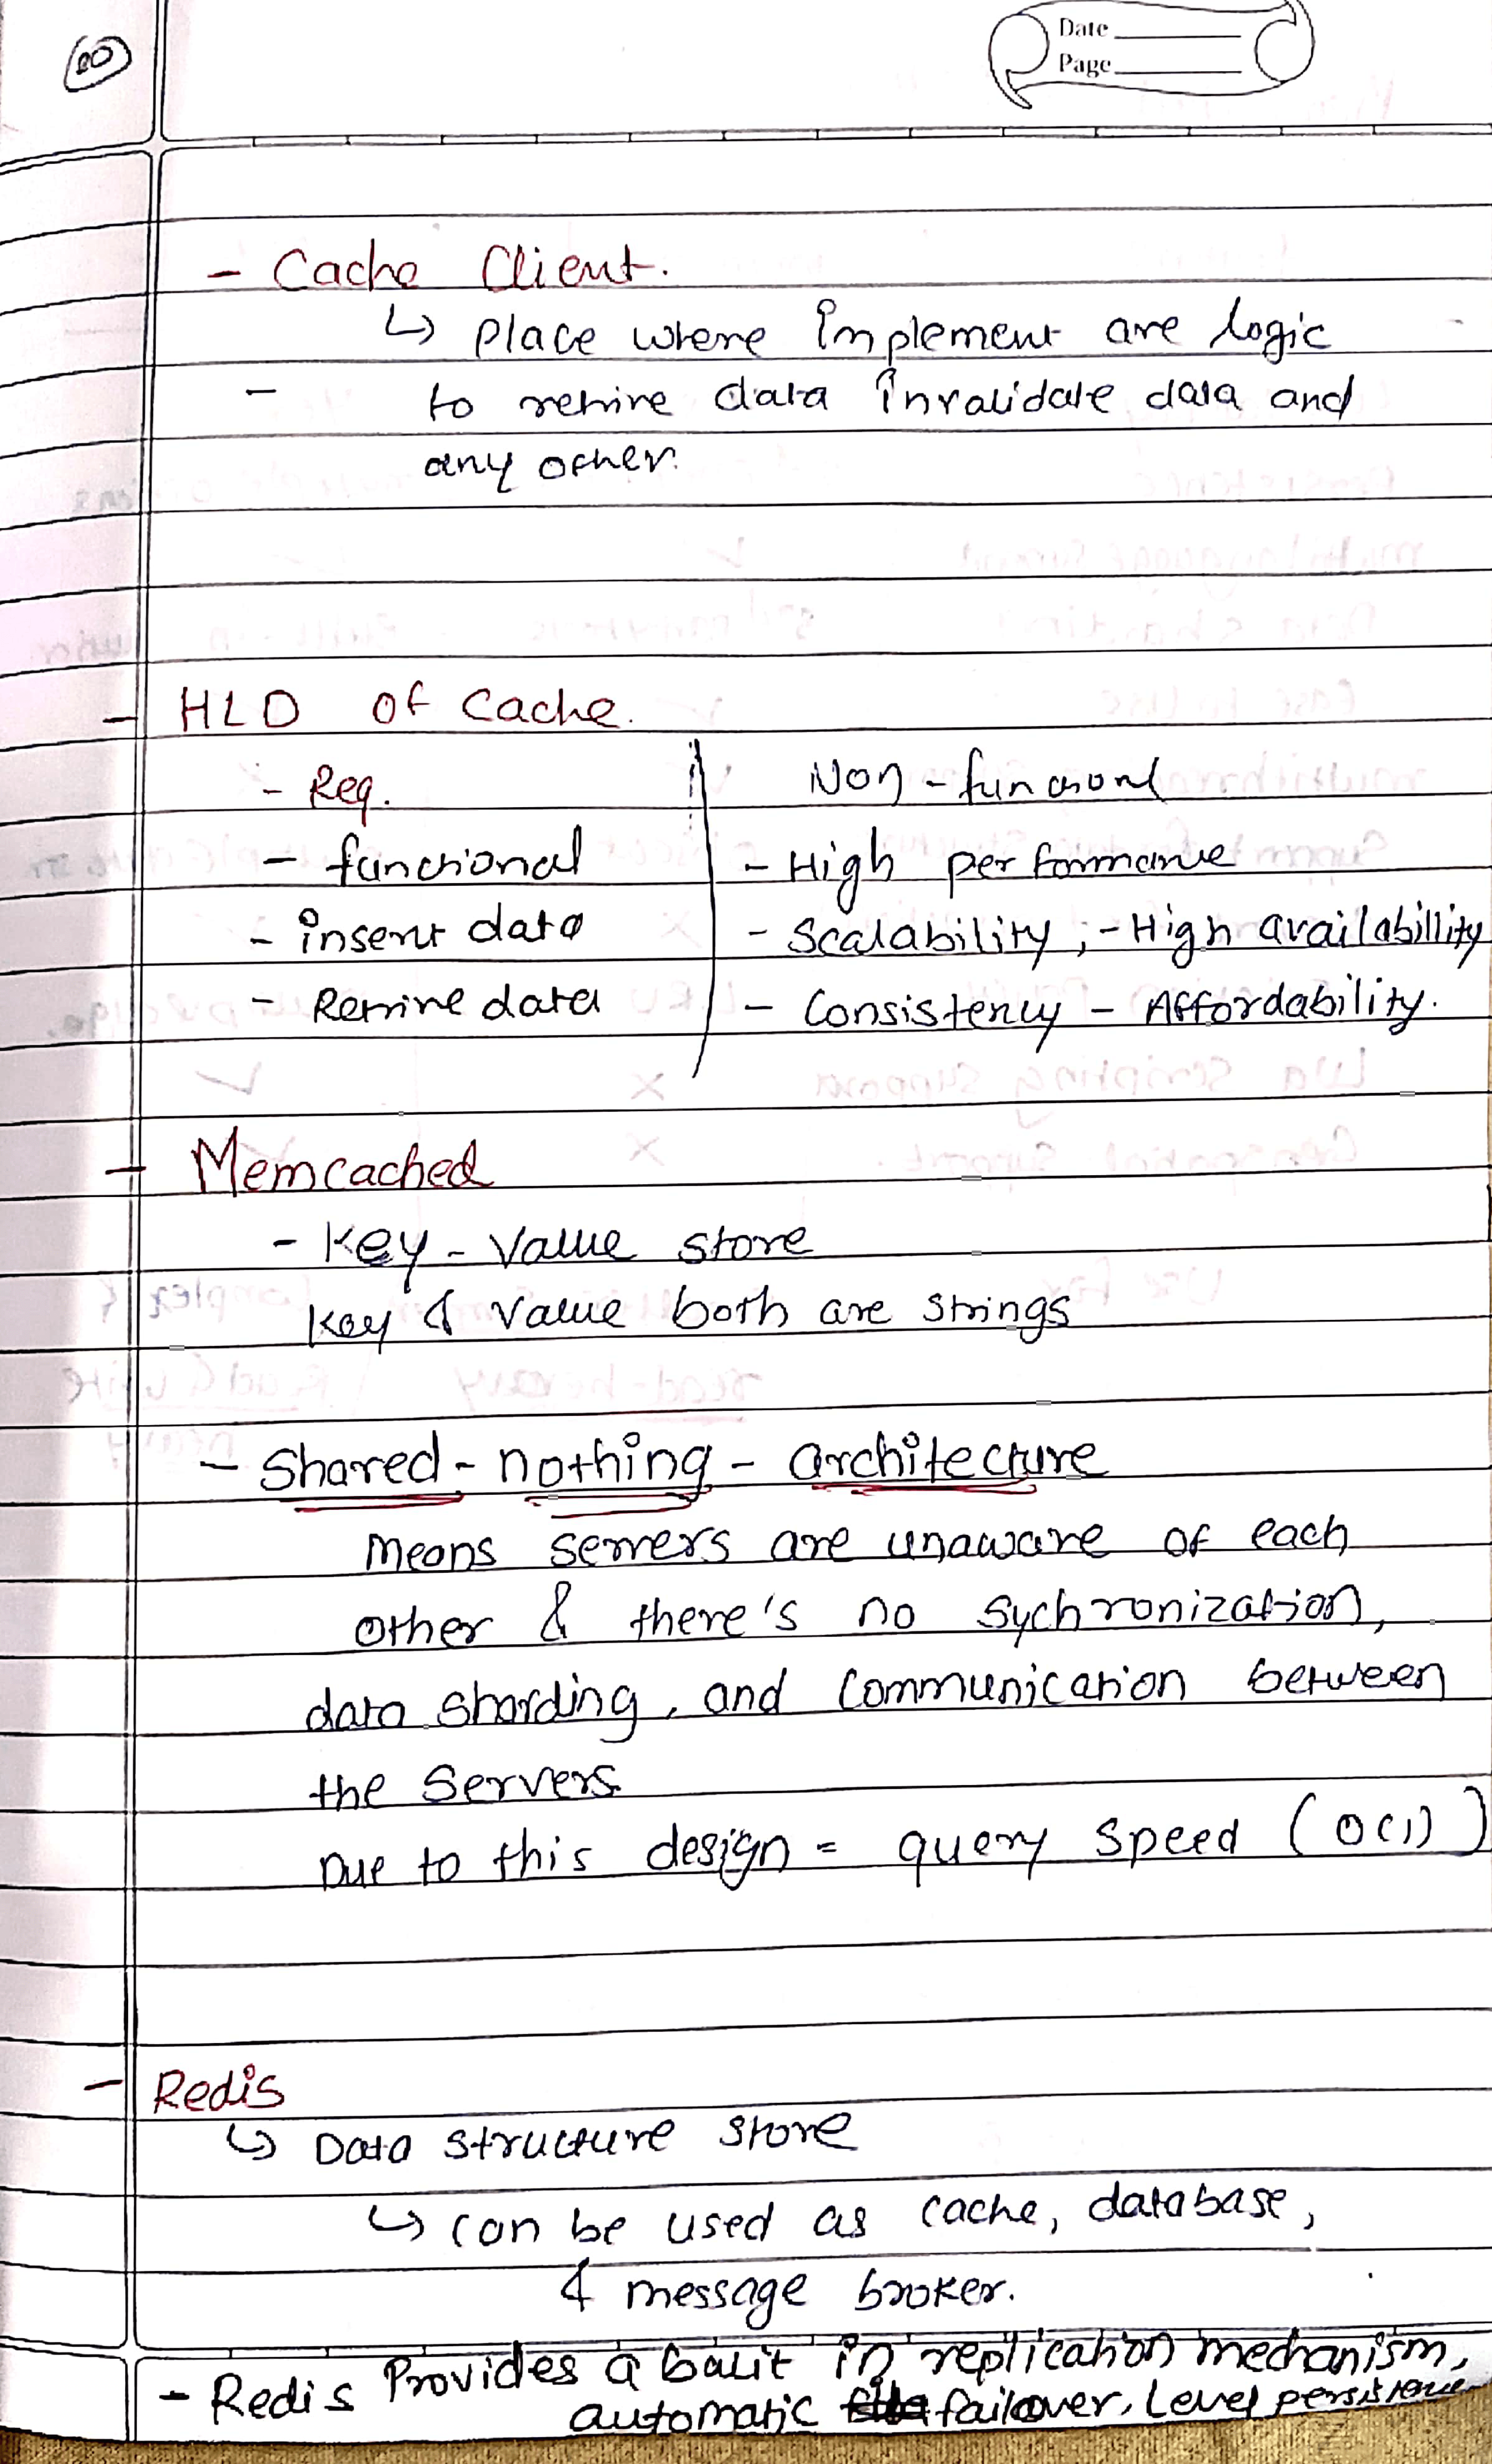 20
Date
Page
- Cache Client.
↳ place where implement are logic
- to retrive data invalidate data and
any other.
- HLD of Cache.
- Req. Non-functional
- functional - High performance
- insert data - Scalability, - High availabillity
- Retrive data - Consistency - Affordability.
- Memcached
- Key-Value store
Key & Value both are strings
- Shared-nothing-architecture
means servers are unaware of each
other & there's no sychronization,
data sharding, and communication between
the servers
Due to this design = query speed (O(1))
- Redis
↳ Data structure store
↳ can be used as cache, database,
& message broker.
- Redis Provides a built in replication mechanism,
automatic failover, Level persistence